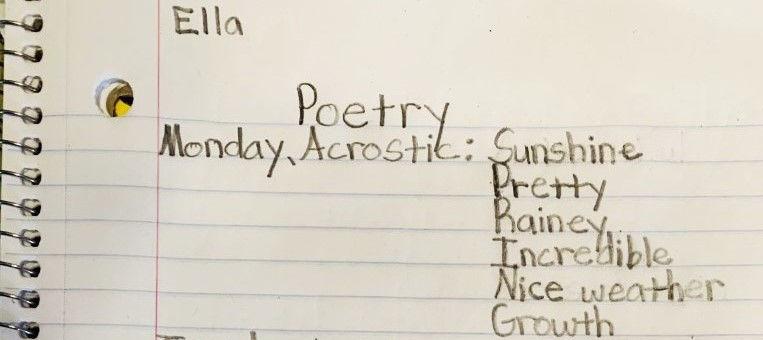 Ella
Poetry
Monday, Acrostic: Sunshine
Pretty
Rainey
Incredible
Nice weather
Growth